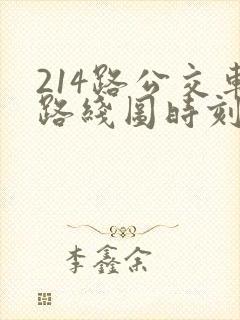 214路公交車
路綫圖時刻
李鑫余